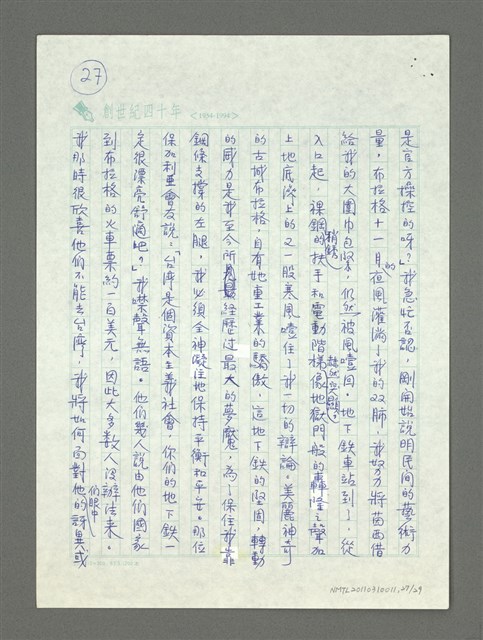 27
創世紀四十年 <1954-1994>
是官方操控的呀？」我急忙否認，剛開始說明民間的藝術力
量，布拉格十一月夜的風灌滿了我的双肺，我努力將茵茵借
給我的大圍巾包緊，仍然被風噎回。地下鉄車站到了，從
入口起，裸鋼的扶手和電動階梯像地獄門般的轟隆之聲加
上地底修上的又一股寒風噎住了我一切的辯論。美麗神奇
的古城布拉格，自有她重工業的驕傲，這地下鉄的堅固，轉動
的威力是我至今所經歷过最大的夢魘，為了保住我靠
鋼條支撐的左腿，我必須全神凝住地保持平衡和平安。那位
保加利亞會友說：「台湾是個資本主義社會，你們的地下鉄一
定很漂亮舒適吧？」我噤聲無語。他們幾人說由他們國家
到布拉格的火車票約一百美元，因此大多数人沒辦法來。
我那時很欣喜他們不能去台湾，我將如何面對他們眼中的訝異或
NMTL20110310011,27/29